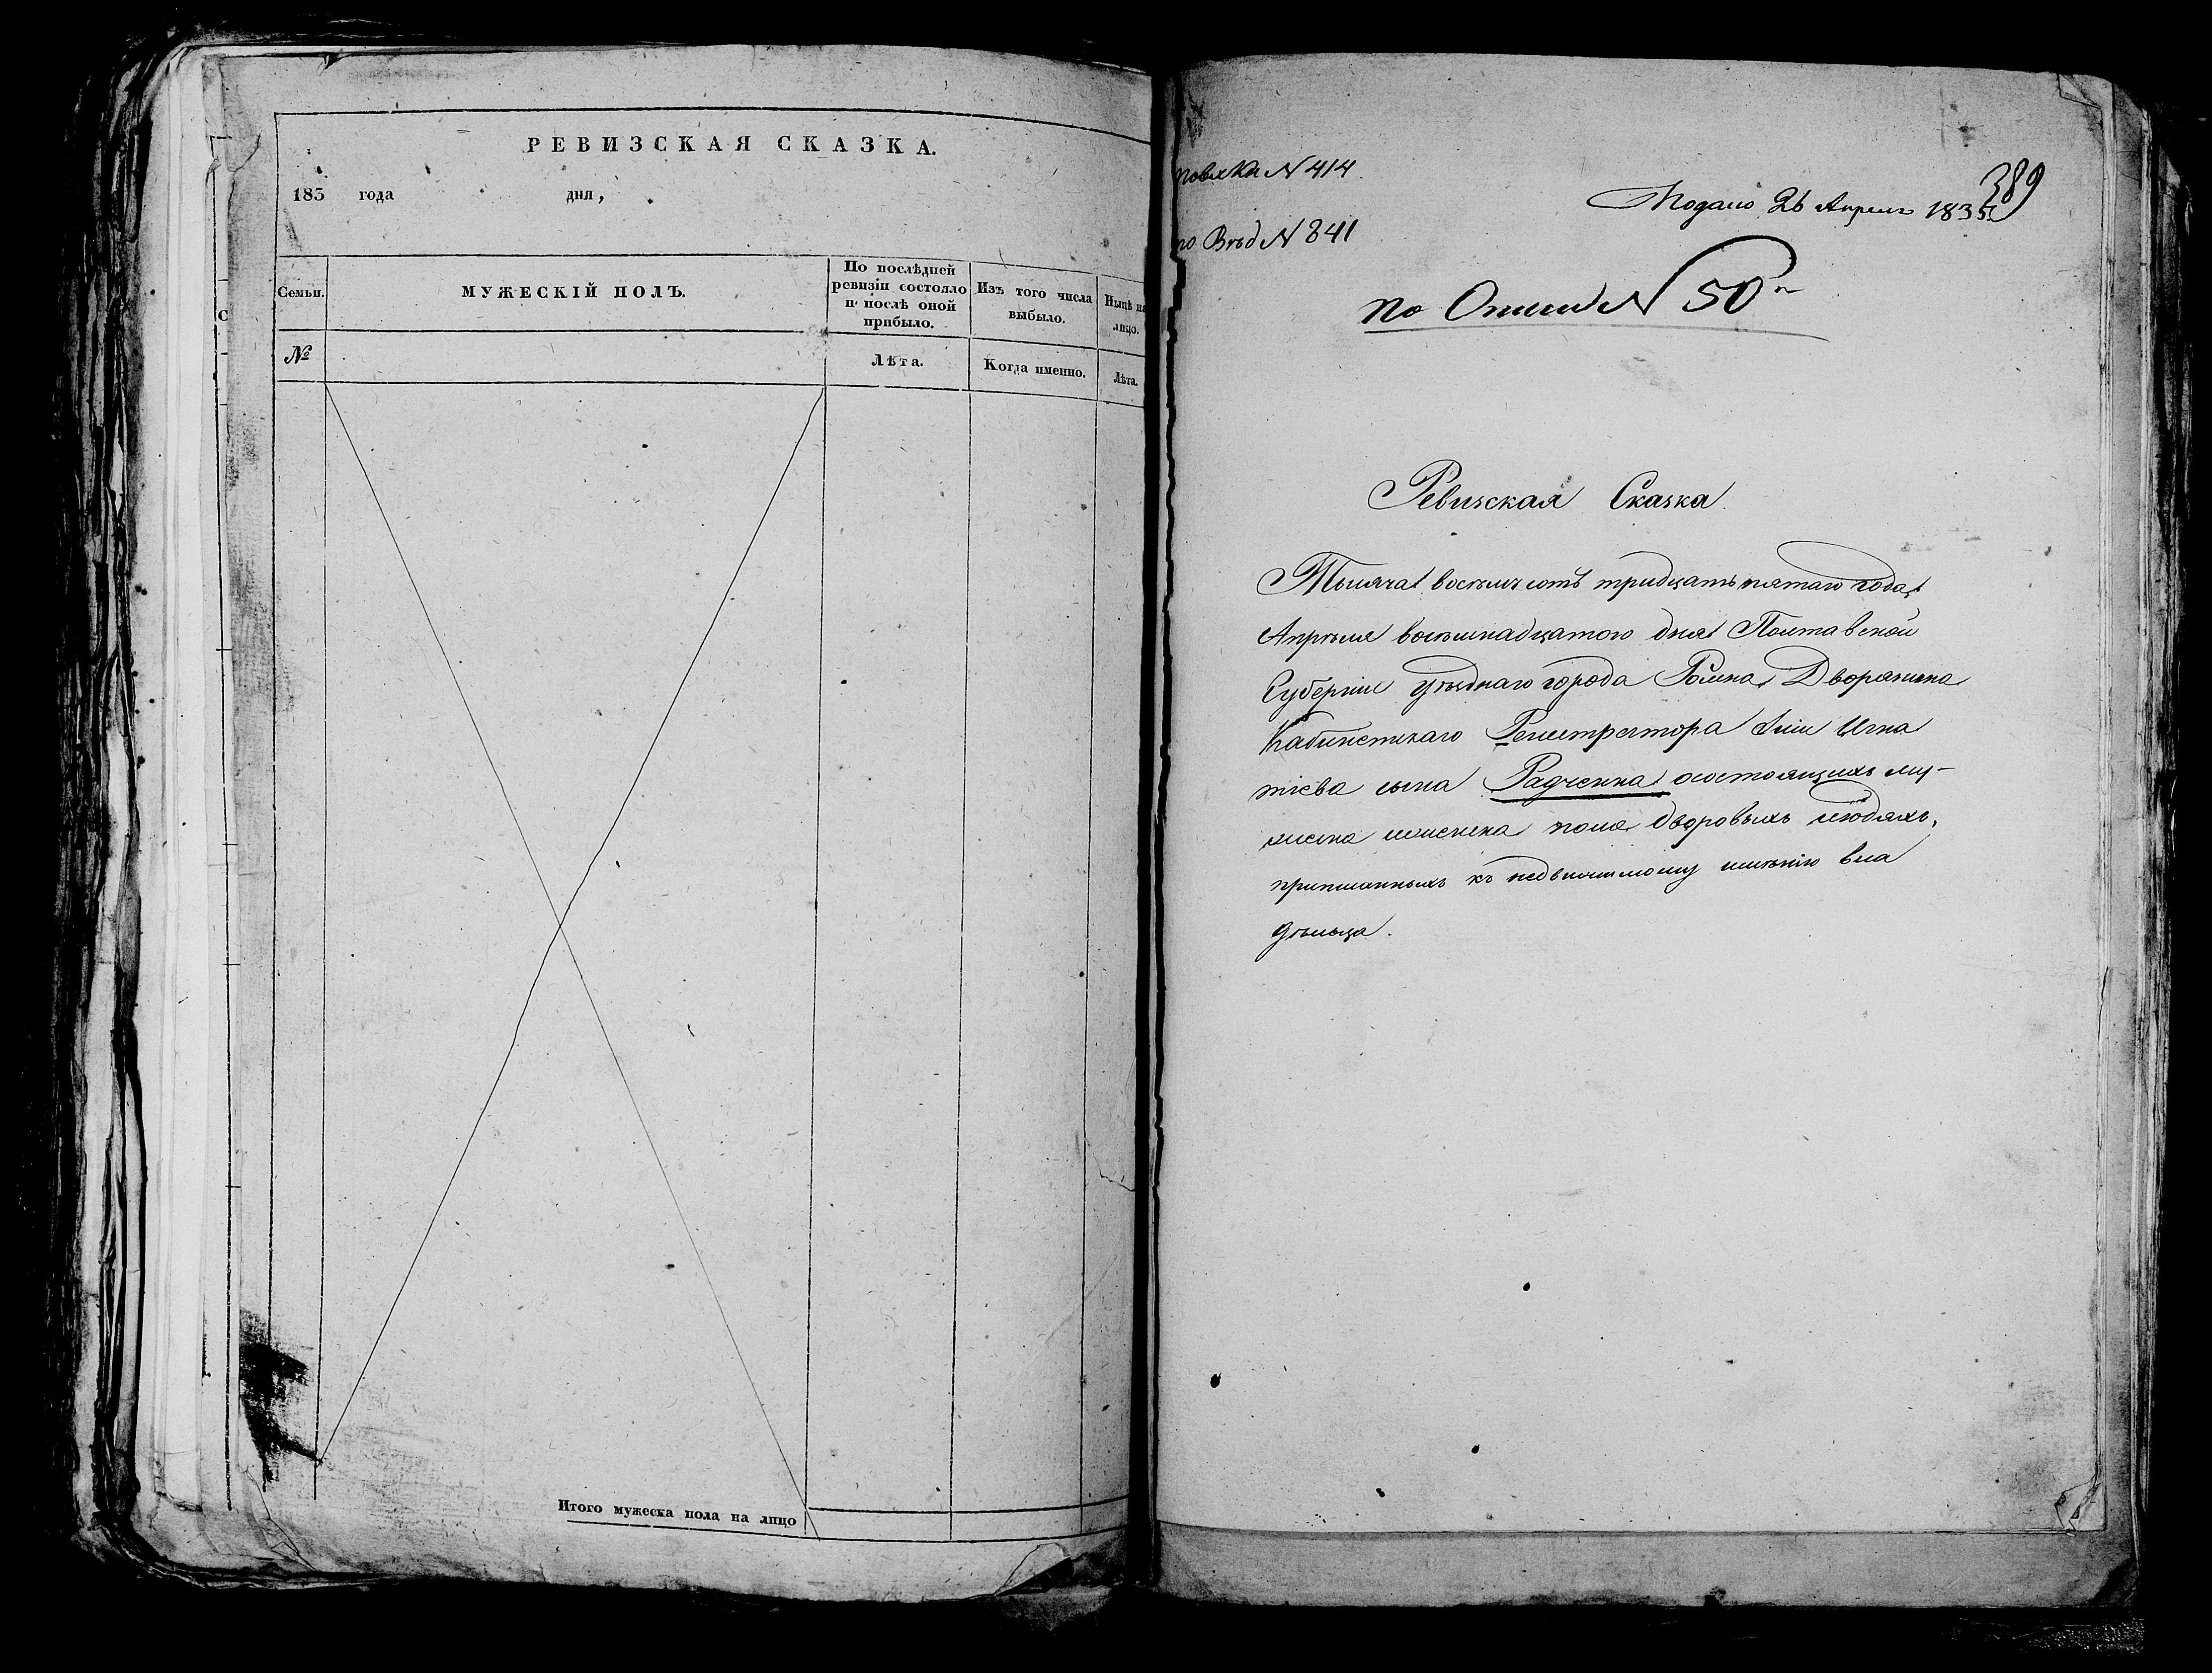 РЕВИЗСКАЯ СКАЗКА.
183 года дня,
Семьи.
МУЖЕСКІЙ ПОЛЪ.
По послѣдней
ревизіи состояло
и послѣ оной
прибыло.
Изъ того числа
выбыло.
Нынѣ на
лицо.
№
Лѣта.
Когда именно.
Лѣта.
Итого мужеска пола на лицо
N 414
389
Подано 26 Апреля 1835
по N 841
по Описи N 50
Ревизская Сказка.
Тысяча восемь сотъ тридцать пятаго года
Апрѣля восемнадцатого дня Полтавской
Губерніи уѣзднаго города Ромна, Дворянина
Кабинетскаго Регистратора Игна
тіева сына Радченка о состоящихъ му-
жеска и женска пола дворовыхъ людяхъ,
приписанныхъ къ недвижимому имѣнію вла
дѣльца.